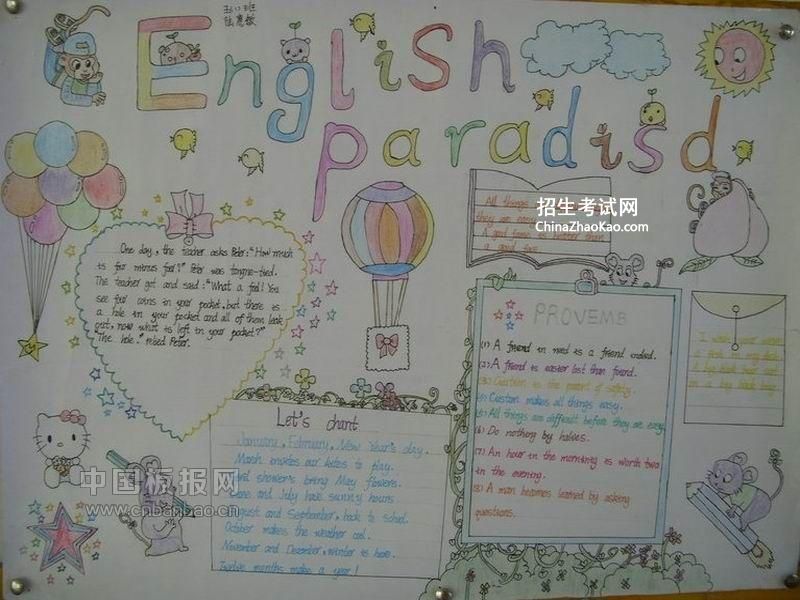 五(2)班
English
paradisd
招生考试网
ChinaZhaoKao.com
One day, the teacher asks Peter: "How much
is four minus four?" Peter was tongue-tied.
The teacher got and said: "What a fool! You
see four coins in your pocket, but there is
a hole in your pocket and all of them leak
out, now what is left in your pocket?"
"The hole." Peter.
All things
they are
A good fame is better than
a good face
PROVEMB
(1) A friend in need is a friend indeed.
(2) A friend is easier lost than found.
(3) Caution is the parent of safety.
Custom makes all things easy.
(5) All things are difficult before they are easy.
(6) Do nothing by halves.
(7) An hour in the morning is worth two
in the evening.
(8) A man becomes learned by asking
questions.
I wish you
a fish in
a big
in a big
Let's chant
January, February, New Year's day.
March invites our kites to play.
April shower's bring May flowers.
June and July have sunny hours
August and September, back to school.
October makes the weather cool.
November and December, winter is here.
Twelve months make a year!
中国板报网
www.cnbanbao.cn